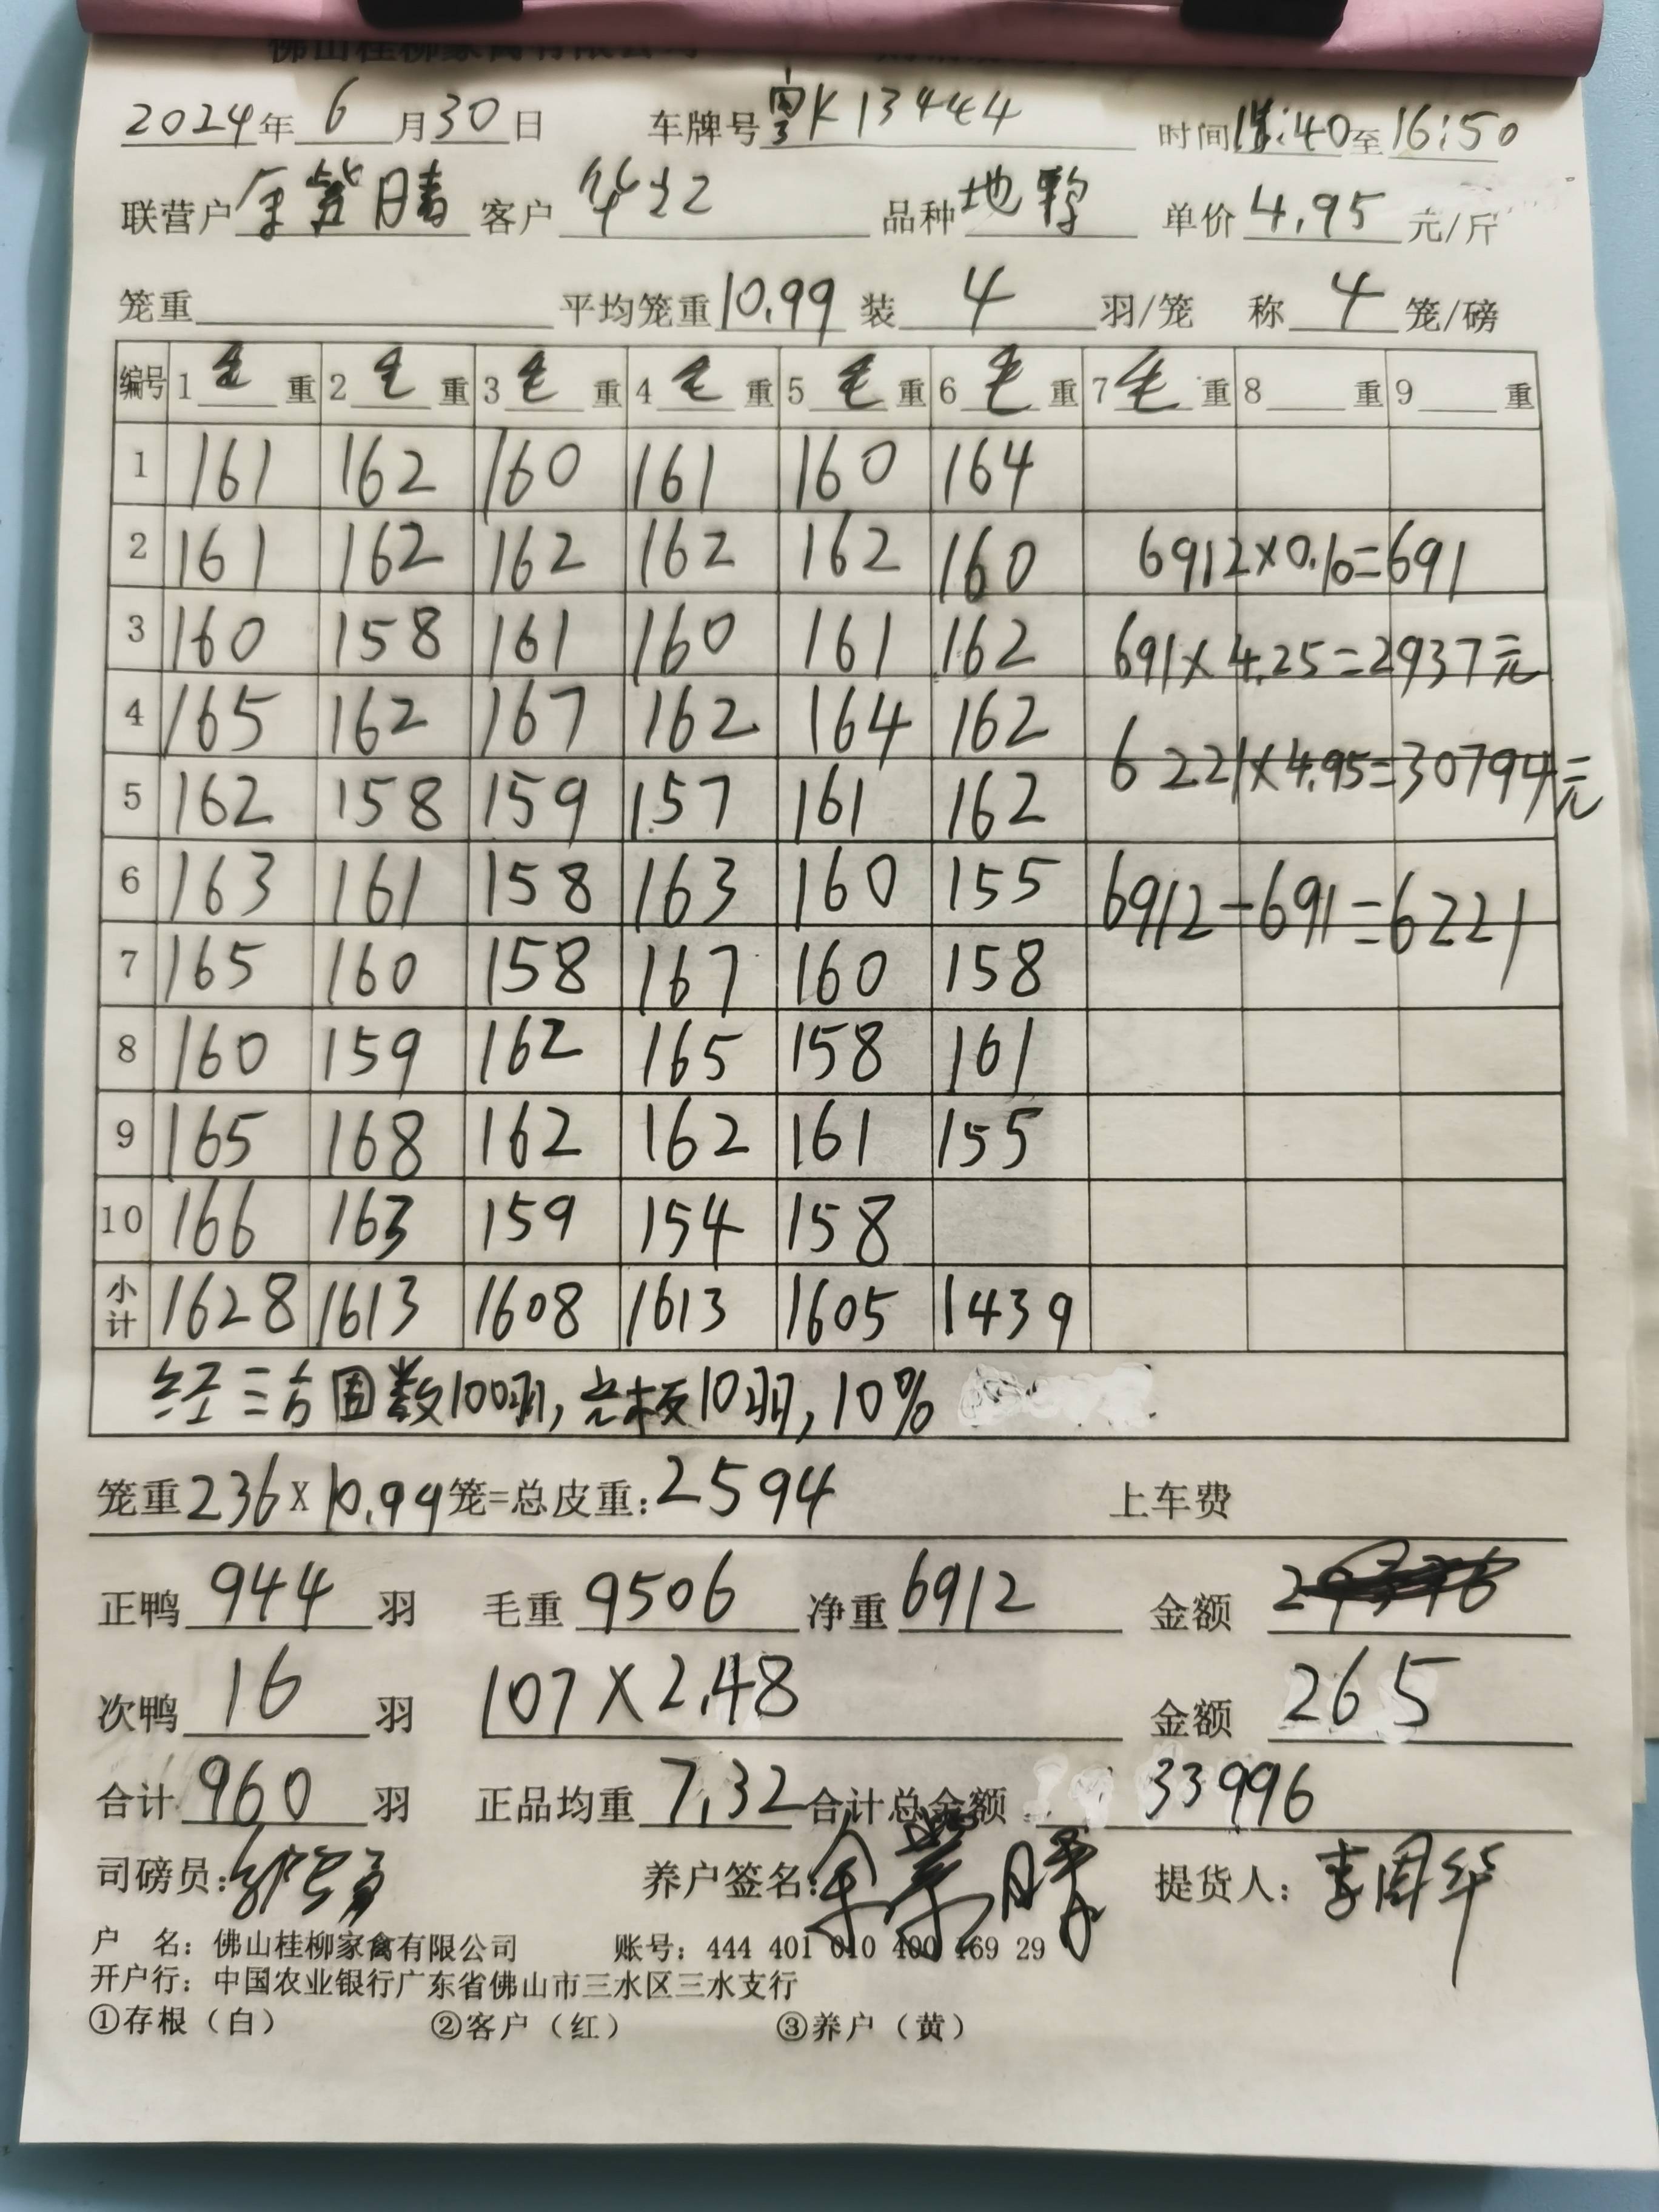 佛山桂柳家禽有限公司
2024年 6 月30日 车牌号粤K13444 时间15:40至16:50
联营户余 客户 品种地鸭 单价 4.95 元/斤
笼重 平均笼重10.99 装 4 羽/笼 称 4 笼/磅
编号 1 毛 重 2 毛 重 3 毛 重 4 毛 重 5 毛 重 6 毛 重 7 毛 重 8 重 9 重
1 161 162 160 161 160 164
2 161 162 162 162 162 160 6912×0.10=691
3 160 158 161 160 161 162 691×4.25=2937元
4 165 162 167 162 164 162
5 162 158 159 157 161 162 6221×4.95=30794元
6 163 161 158 163 160 155 6912-691=6221
7 165 160 158 167 160 158
8 160 159 162 165 158 161
9 165 168 162 162 161 155
10 166 163 159 154 158
小计 1628 1613 1608 1613 1605 1439
经三方围数100羽,光板10羽,10%
笼重236×10.99笼=总皮重:2594 上车费
正鸭 944 羽 毛重 9506 净重6912 金额
次鸭 16 羽 107×2.48 金额 265
合计 960 羽 正品均重 7.32 合计总金额 33996
司磅员: 养户签名:余荣胜 提货人:李周华
户 名:佛山桂柳家禽有限公司 账号:444 401 010 400 169 29
开户行:中国农业银行广东省佛山市三水区三水支行
①存根(白) ②客户(红) ③养户(黄)